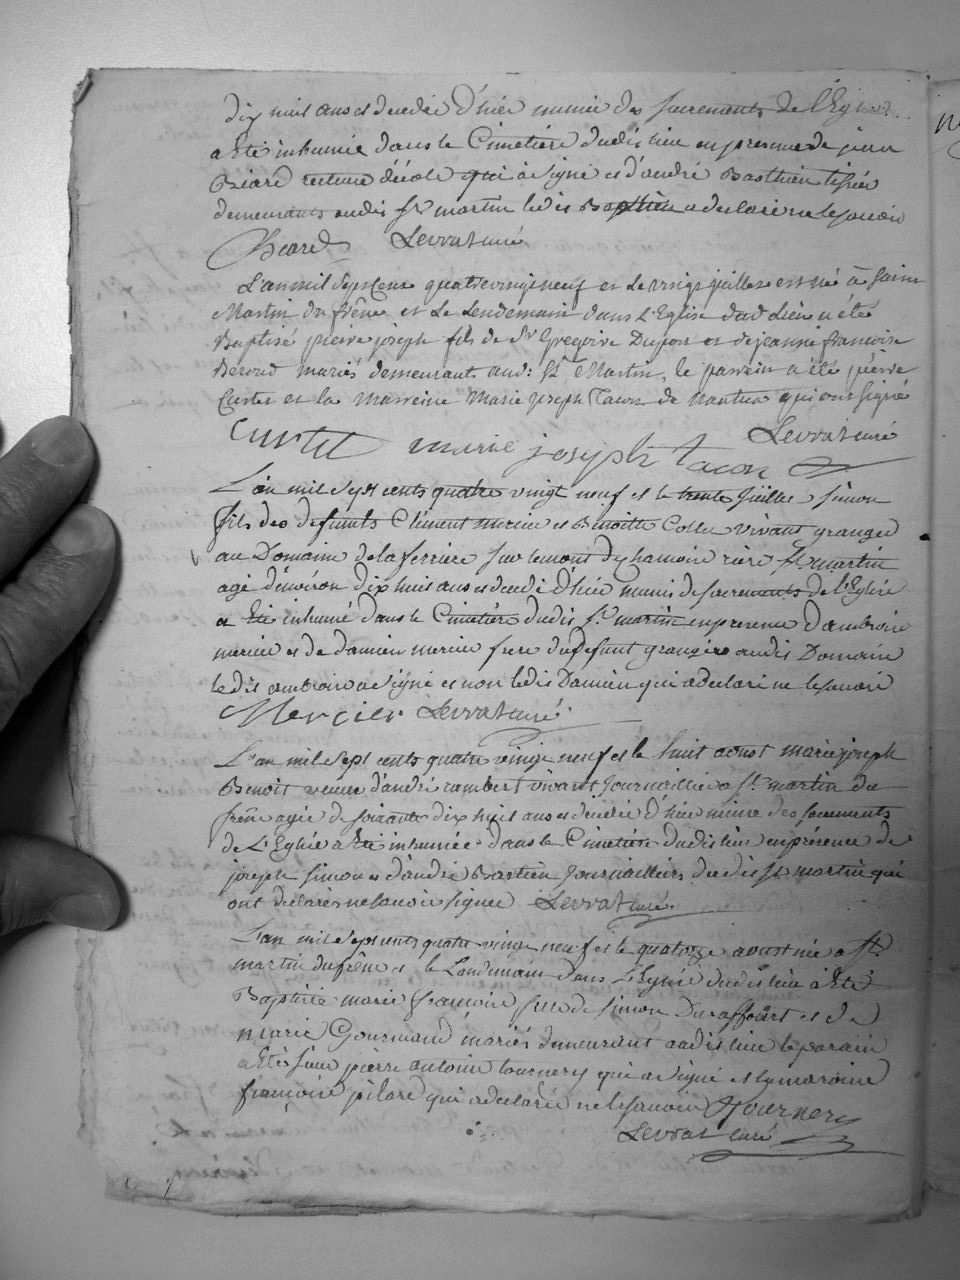 dix huit ans et decedée d'hier munie des sacrements de l'Eglise
a Eté inhumée dans le Cimetière dudit lieu en presence de jean
Béard recteur d'école qui a signé et d'andré Basthien
demeurants audit St martin ledit Basthien a declaré ne le savoir
Béard Levrat curé
L'an mil Sept Cens quatre vingt neuf et Le vingt juillet est né à saint
Martin du frêne et Le Lendemain dans L'Eglise dud Lieu a été
Baptisé pierre joseph fils de Sr Gregoire Dupont et de jeanne francoise
Beroud mariés demeurant aud: St Martin, le parrein a été pierre
Curtet et la Marreine Marie joseph Tacon de Nantua qui ont signé
Levrat curé
Curtet marie joseph tacon
L'an mil Sept cents quatre vingt neuf et le trente juillet simon
fils des defunts Clément mercier et Benoitte Collet vivant granger
au Domaine de la ferriere sur le mont de chamoise rière St martin
agé d'environ dix huit ans et decedé d'hier munis de sacrements de l'Eglise
a Eté inhumé dans le Cimetière dudit St martin en presence d'ambroise
mercier et de damien mercier frere du defunt grangers audit Domaine
ledit ambroise a signé et non ledit Damien qui a declaré ne le savoir
Mercier Levrat curé
L'an mil sept cents quatre vingt neuf et le huit aoust marie joseph
Benoit veuve d'andré rambert vivant journaillier a St martin du
frêne agée de soixante dix huit ans et decedée d'hier munie des sacrements
de L'Eglise a Eté inhumée dans le Cimetière dudit lieu en présence de
joseph simon et d'andré Bastien journailliers dudit St martin qui
ont declarés ne savoir signer Levrat curé.
L'an mil sept cents quatre vingt neuf et le quatorze aoust née a St
martin du frêne et le Lendemain dans L'Eglise dudit lieu a Eté
Baptisée marie francoise fille de simon Duraffourt et de
marie Gourmand mariés demeurant audit lieu le parain
a Eté sieur pierre antoine tournery qui a signé et la maraine
françoise pilard qui a declarée ne le savoir Tournery
Levrat curé